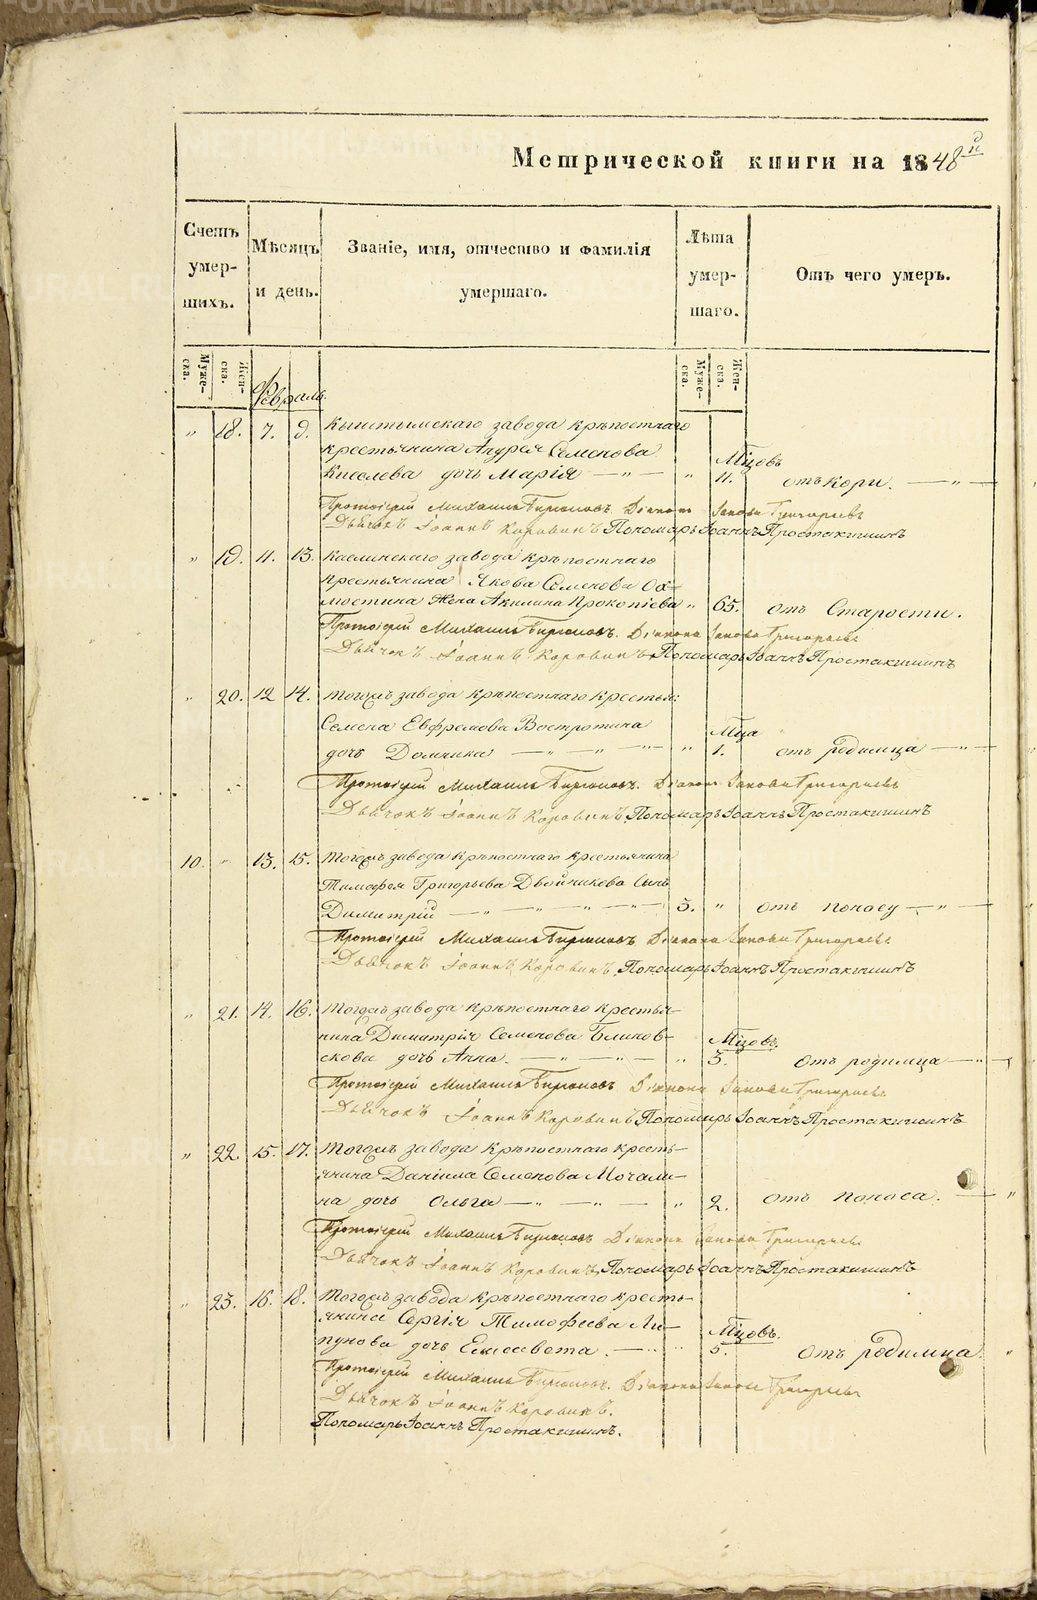 Метрической книги на 1848й
Счетъ умер-шихъ.
Мѣсяцъ и день.
Званіе, имя, отчество и фамилія умершаго.
Лѣта умер-шаго.
Отъ чего умеръ.
Муже-ска.
Жен-ска.
Февраль.
Муже-ска.
Жен-ска.
„ 18. 7. 9. Кыштымскаго завода крѣпостнаго
крестьянина Андрея Семенова Мцовъ
Киселева дочь Марія — „ — „ 11. отъ кори. — „ —
Протоіерей Михаилъ Бирюковъ. Діаконъ Іаковъ Григорьевъ
Дьячокъ Іоаннъ Коровинъ Пономарь Іоаннъ Простакишинъ
„ 19. 11. 13. Каслинскаго завода крѣпостнаго
крестьянина Якова Семенова
жена Акилина Прокопіева „ 65. отъ Старости.
Протоіерей Михаилъ Бирюковъ. Діаконъ Іаковъ Григорьевъ
Дьячокъ Іоаннъ Коровинъ Пономарь Іоаннъ Простакишинъ
„ 20. 12 14. Тогожъ завода крѣпостнаго крестьян:
Семена Евфремова Востротина Мца
дочь Домника — „ — „ — „ — „ 1. отъ родимца — „ —
Протоіерей Михаилъ Бирюковъ. Діаконъ Іаковъ Григорьевъ
Дьячокъ Іоаннъ Коровинъ Пономарь Іоаннъ Простакишинъ
10. „ 13. 15. Тогожъ завода крѣпостнаго крестьянина
Тимофея Григорьева Двойникова сынъ
Димитрій — „ — „ — „ — „ — 3. „ отъ поносу — „ —
Протоіерей Михаилъ Бирюковъ Діаконъ Іаковъ Григорьевъ
Дьячокъ Іоаннъ Коровинъ. Пономарь Іоаннъ Простакишинъ
„ 21. 14. 16. Тогожъ завода крѣпостнаго крестья-
нина Димитрія Семенова Блинов- Мцовъ.
скова дочь Анна. — „ — „ — „ 3. отъ родимца — „ —
Протоіерей Михаилъ Бирюковъ Діаконъ Іаковъ Григорьевъ
Дьячокъ Іоаннъ Коровинъ Пономарь Іоаннъ Простакишинъ
„ 22. 15. 17. Тогожъ завода крѣпостнаго кресть-
янина Даніила Семенова Мочали-
на дочь Ольга — „ — „ — „ 2. отъ поноса. — „
Протоіерей Михаилъ Бирюковъ Діаконъ Іаковъ Григорьевъ
Дьячокъ Іоаннъ Коровинъ Пономарь Іоаннъ Простакишинъ
„ 23. 16. 18. Тогожъ завода крѣпостнаго кресть-
янина Сергія Тимофеева Ли- Мцовъ.
пунова дочь Елисавета. — „ 5. отъ родимца.
Протоіерей Михаилъ Бирюковъ. Діаконъ Іаковъ Григорьевъ
Дьячокъ Іоаннъ Коровинъ.
Пономарь Іоаннъ Простакишинъ.